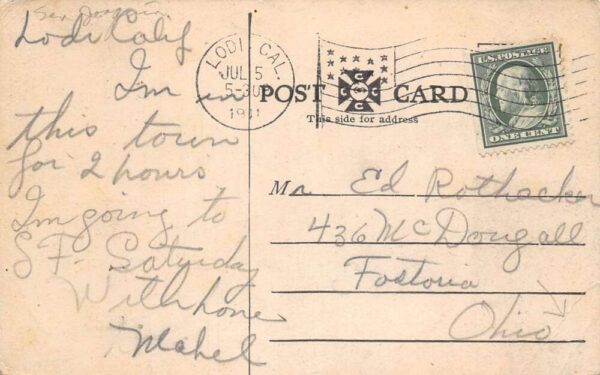 San Joaquin
Lodi Calif
I'm in
this town
for 2 hours
I'm going to
S F. Saturday
With love
Mabel
LODI, CAL.
JUL 5
5-30P
1911
POST CARD
This side for address
U.S. POSTAGE
ONE CENT
Mr Ed Rothecker
436 McDougall
Fostoria
Ohio